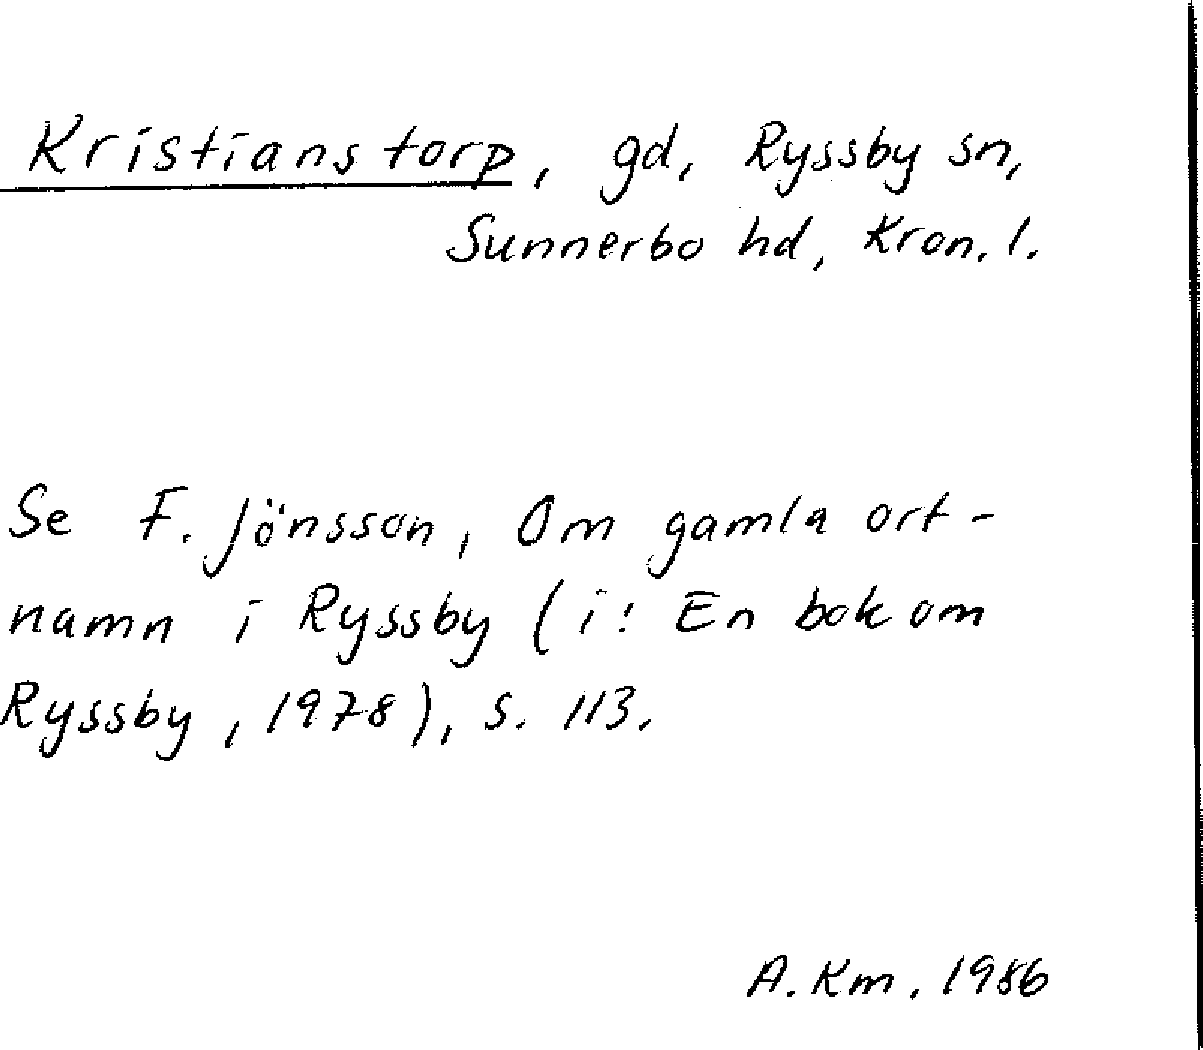 Kristianstorp, gd, Ryssby sn,
Sunnerbo hd, Kron. l.
Se F. Jönsson, Om gamla ort-
namn i Ryssby (i: En bok om
Ryssby, 1978), s. 113.
A. Km. 1986